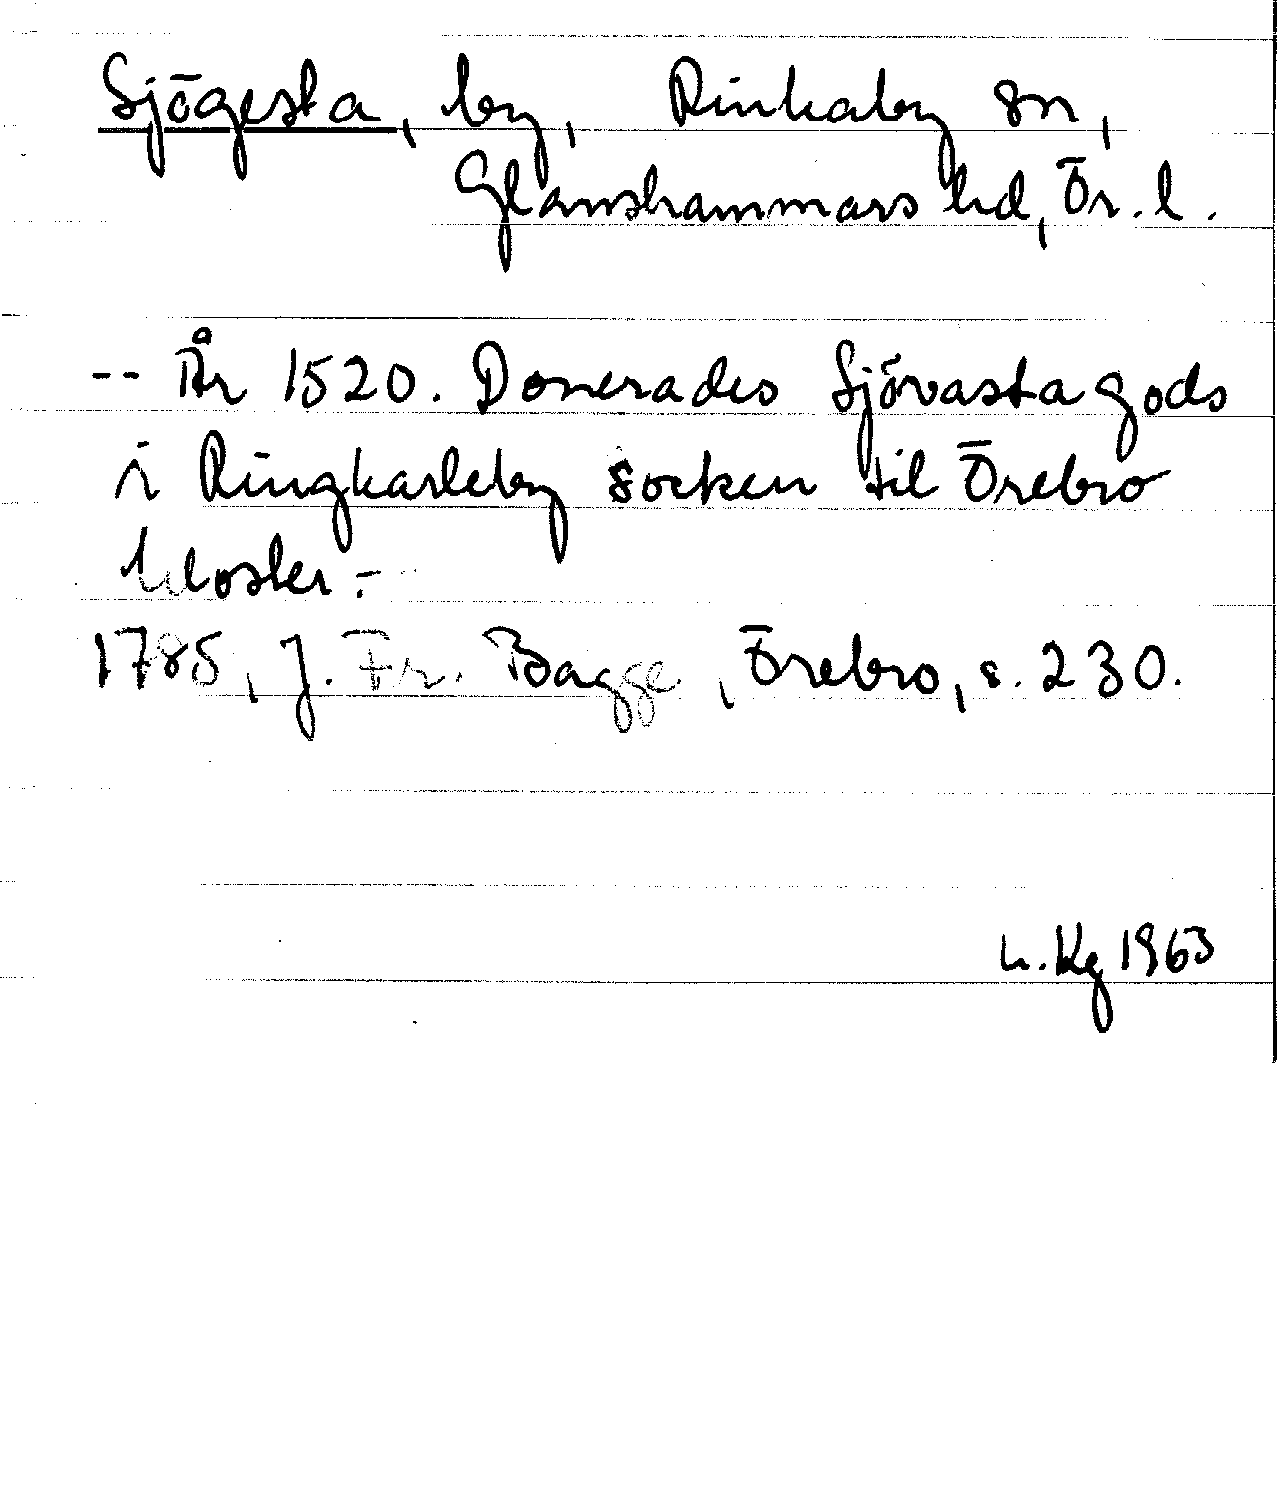 Sjögesta, by, Rinkaby sn,
Glanshammars hd, Ör. l.
-- År 1520. Donerades Sjövasta gods
i Ringkarleby socken til Örebro
kloster.-
1785, J. Fr. Bagge, Örebro, s. 230.
L. Kg 1963